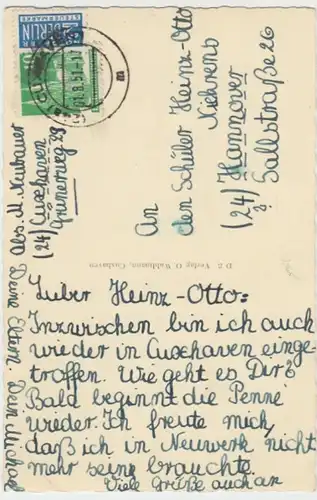 An
den Schüler Heinz-Otto
Niehrens
(24) Hannover
Sallstraße 26
Abs. H. Neubauer
(24) Cuxhaven
D 2 Verlag O. Waldmann, Cuxhaven
Lieber Heinz-Otto:
Inzwischen bin ich auch
wieder in Cuxhaven einge-
troffen. Wie geht es Dir?
Bald beginnt die Penne
wieder. Ich freute mich,
daß ich in Neuwerk nicht
mehr seine brauchte.
Viele Grüße auch an
Deine Eltern. Dein Michael
BERLIN
STEUERMARKE